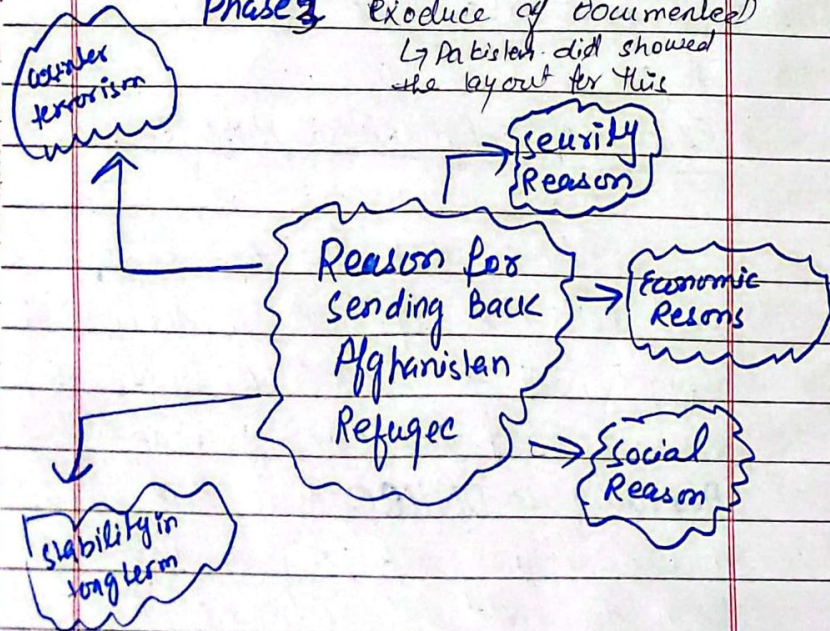 Phase 3 exoduce of documented)
↳ Pakistan did showed
the layout for this
counter
terrorism
seurity
Reason
Reason for
Sending Back
Afghanistan
Refugee
Economic
Resons
Social
Reason
stability in
long term